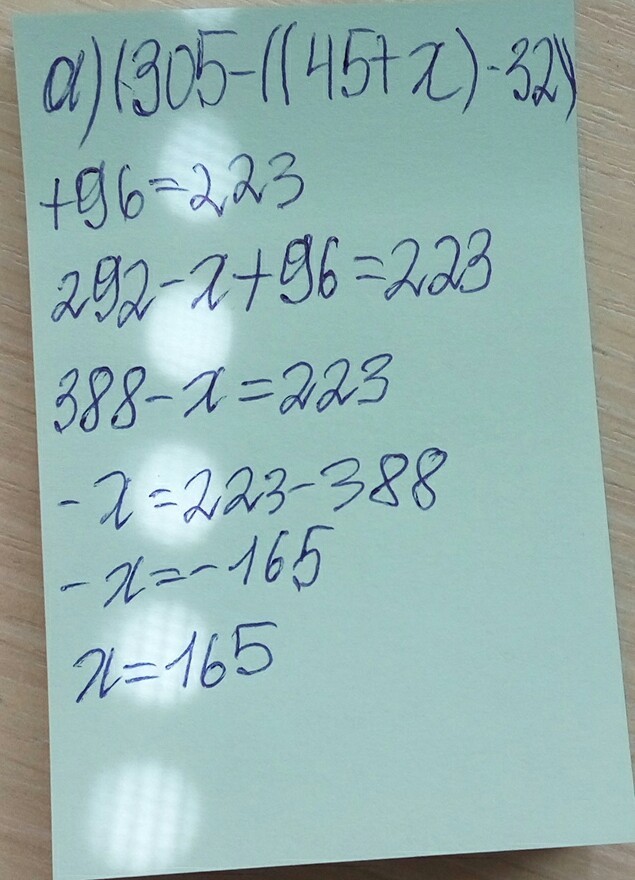 a) (305-((45+x)-32))
+96=223
292-x+96=223
388-x=223
-x=223-388
-x=-165
x=165